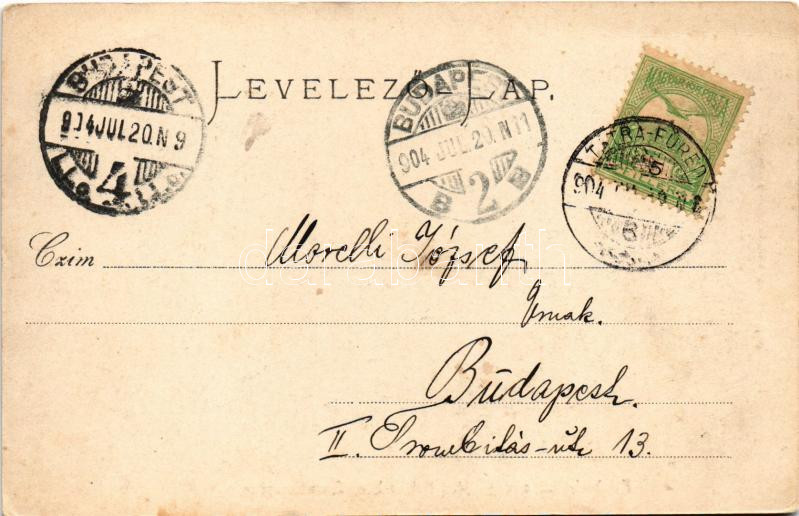 LEVELEZŐ-LAP.
BUDAPEST
904 JUL 20. N 9
4
BUDAPEST
904 JUL. 20. N 11
B 2 B
MAGYAR KIR. POSTA
TÁTRA-FÜRED
904
Czim Morelli József,
Úrnak.
Budapest.
II. Trombitás-út 13.
darabanth